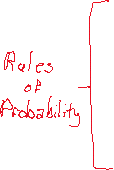 Rules
of
Probability